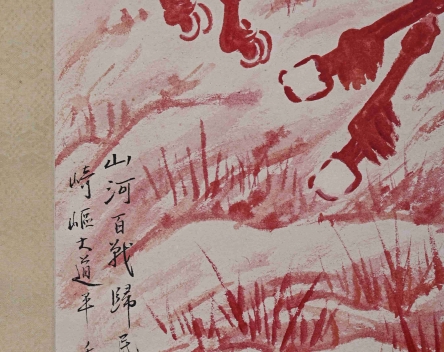 山河百戰歸民
崎嶇大道平